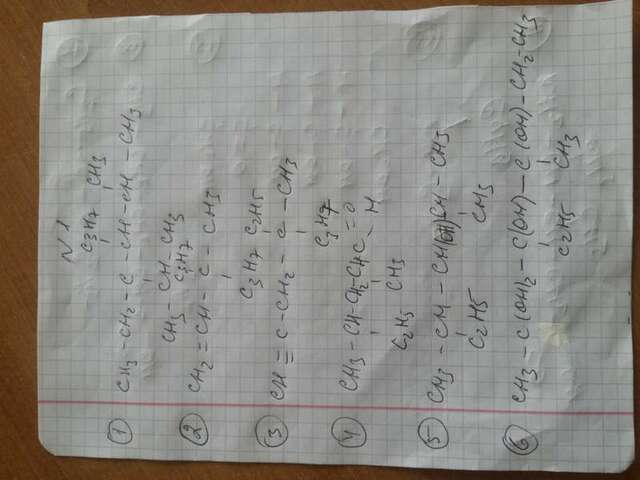 N 1
C3H7 CH3
① CH3 - CH2 - C - CH - CH - CH3
CH3 - CH - CH3
C3H7
② CH2 = CH - C - CH3
C3H7 C2H5
③ CH ≡ C - CH2 - C - CH3
C3H7
④ CH3 - CH - CH2 - CH C = O
- H
C2H5 CH3
⑤ CH3 - CH - CH(OH) CH - CH3
C2H5 CH3
⑥ CH3 - C(OH)2 - C(OH) - C(OH) - CH2 - CH3
C2H5 CH3